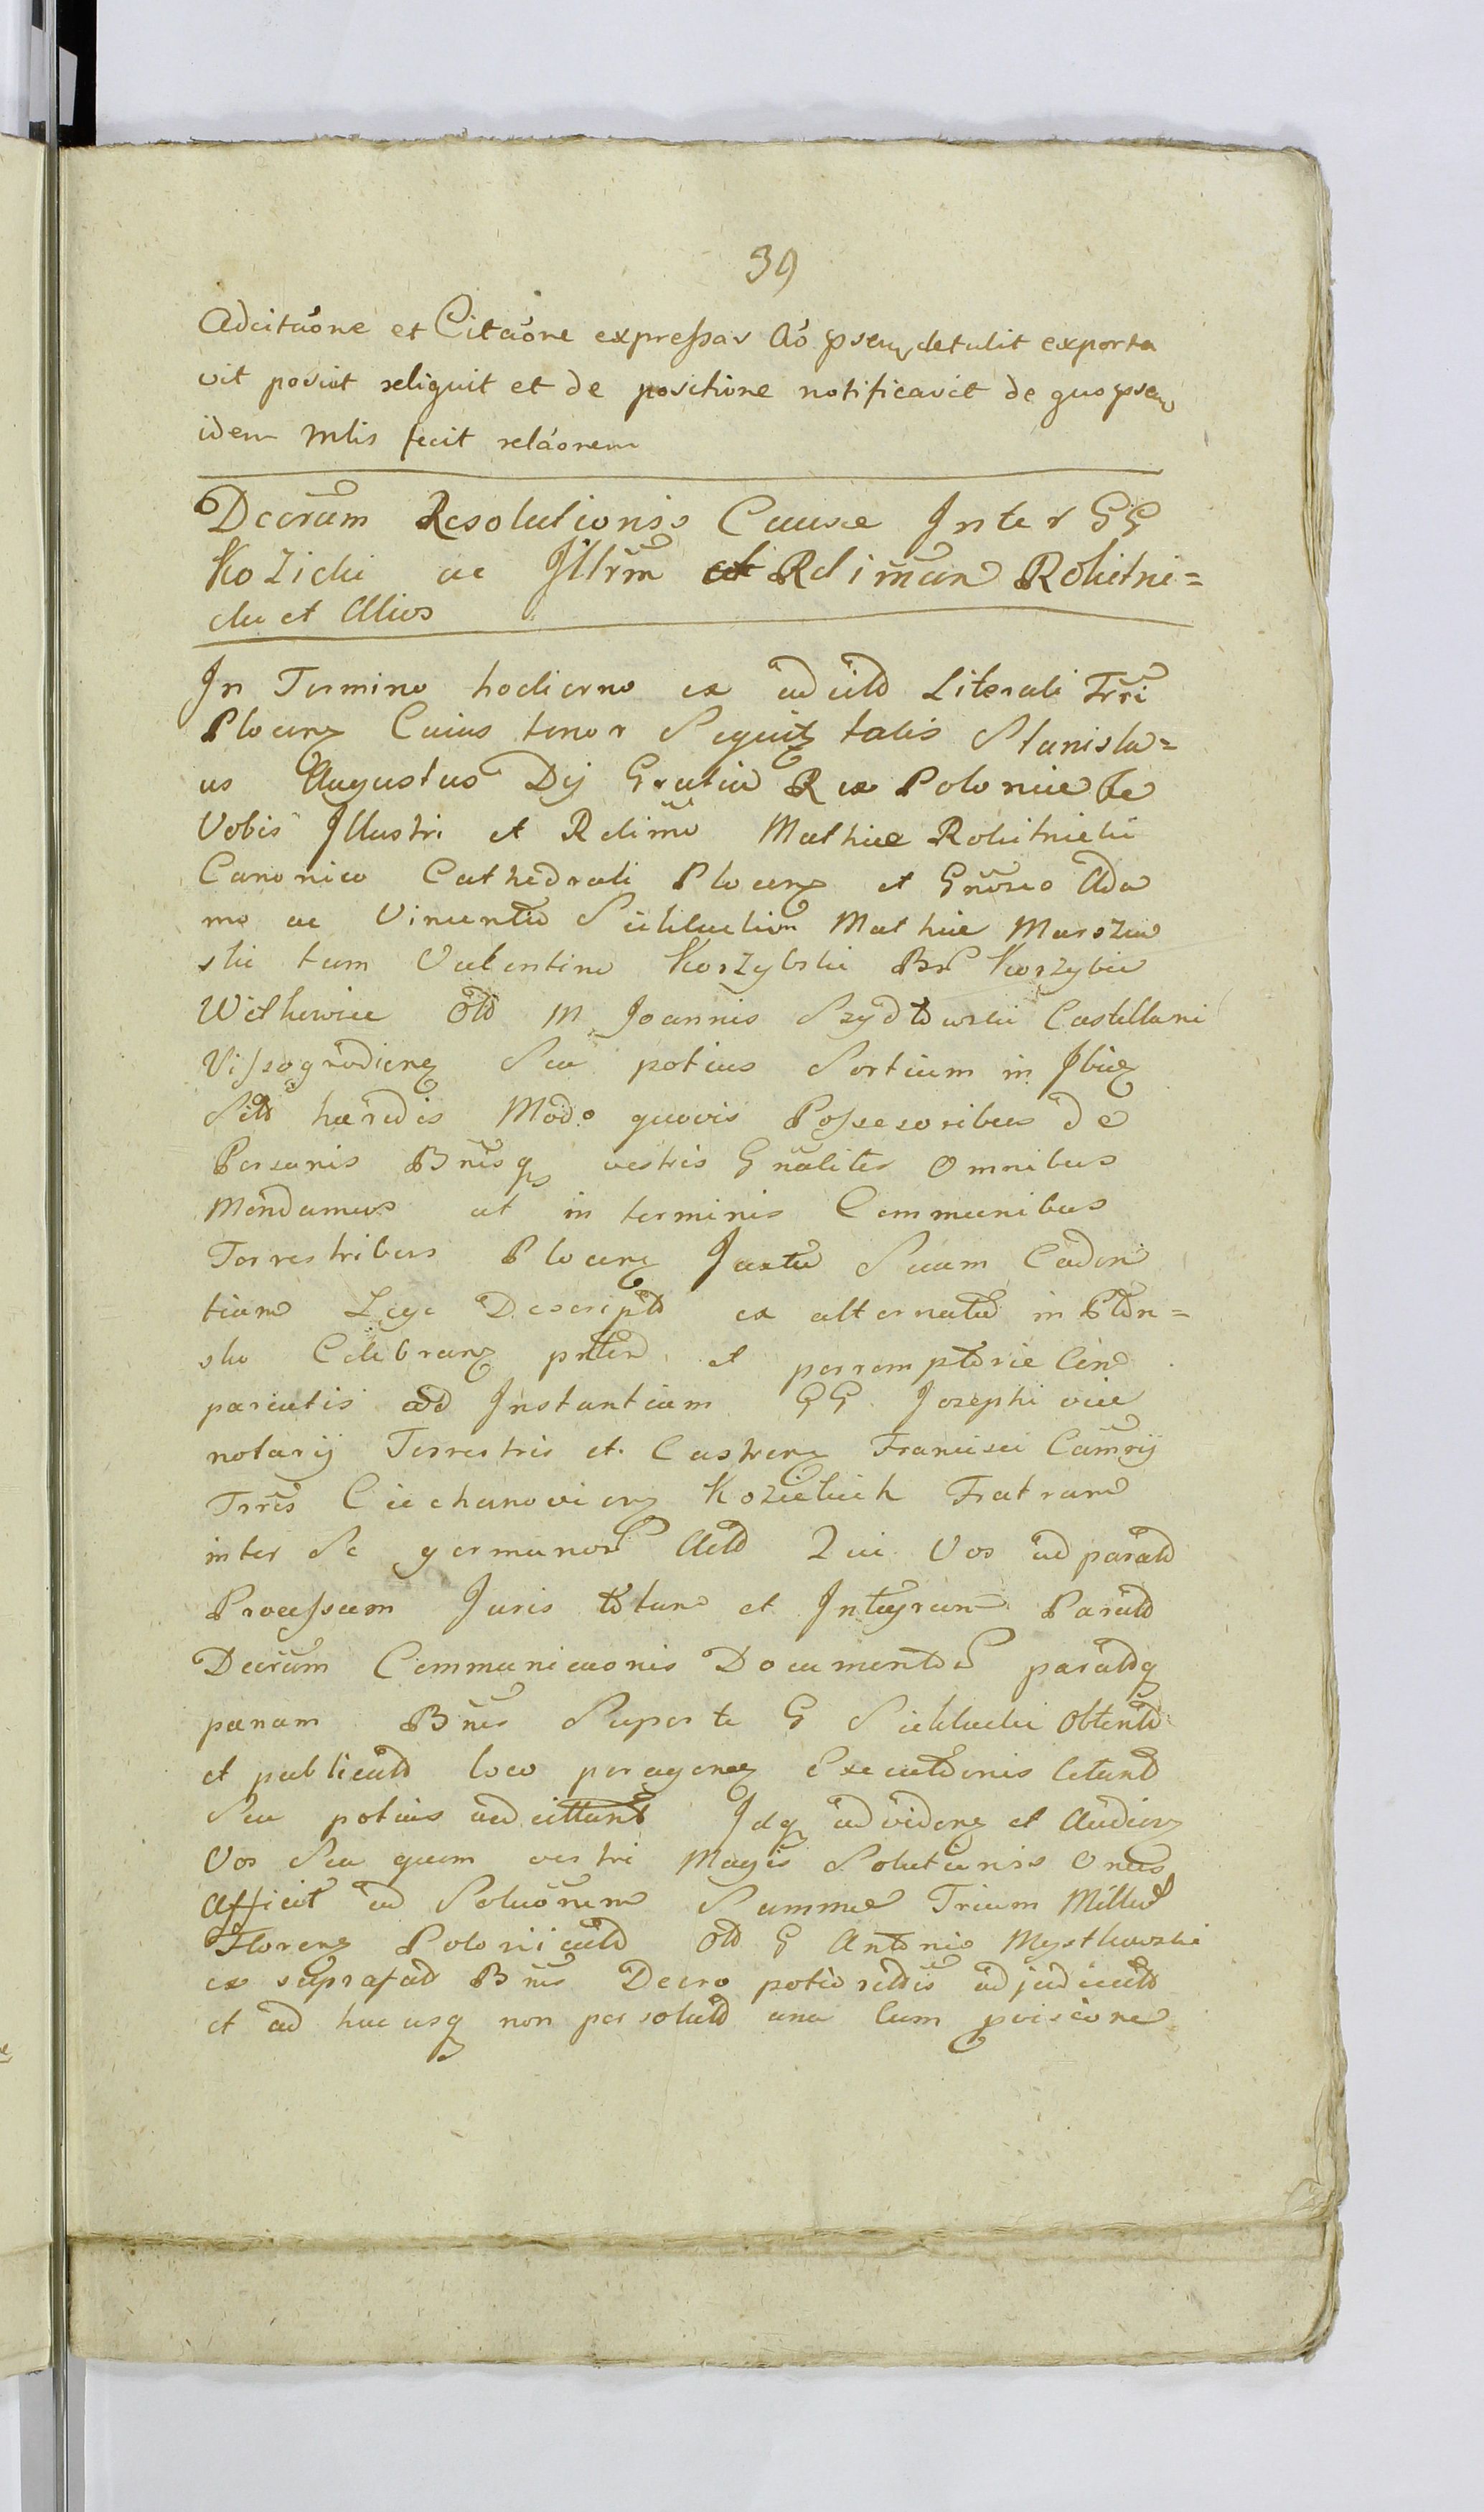 39
Adcitaone et Citaone expressas ao psens detulit exporta
vit posuit reliquit et de positione notificavit de quo psens
idem Mlis fecit relaonem
Decrum Resolutionis Cause Inter GG
Kozicki ac Illrm et Rdimum Rokitni=
cki et Alios
In Termino hodierno ex adcitd Literali Trri
Plocen Cuius tenor Sequit talis Stanisla=
us Augustus Dij Gratia Rex Polonie &c
Vobis Illustri et Rdimo Mathie Rokitnicki
Canonico Cathedrali Plocen et Gnoso Ada
mo ac Vincentio Mathie Marsze
ski tum Valentino Korzybski Br Korzybie
Witkowice Old M Joannis Szydtowski Castellani
Vissogrodien Seu potius Sortium in Ibid
Sitd hæredis Modo quovis Possesoribus de
Personis Bnisq vestris Gnaliter Omnibus
Mandamus ut in terminis Communibus
Terrestribus Plocen Juxta Suam Caden
tiam Lege Descriptd ex alternata in Pton=
sko Celebran pnter et perremptorie Com
pareatis ad Instantiam GG. Josephi vice
notarij Terrestris et Castren Francisci Camrij
Trris Ciechanovien Kozickich Fratrum
inter Se germanor Actd Qui Vos ad paratd
Processum Juris totum et Integrum Paratd
Decrum Communicaonis Documentor paratdq
pænam Bnis Super te G obtentd
et publicatd loco peragen Executionis Citant
Seu potius adcittant Idq ad viden et Audien
Vos Seu quem vestri Magis Solutionis Onus
Afficit ad Soluonem Summe Trium Mille
Floren Polonicald Old G Antonio Mystkowski
ex suprafatd Bnis Decro potioritis adjudicatd
et ad hucusq non persolutd una Cum pvisione